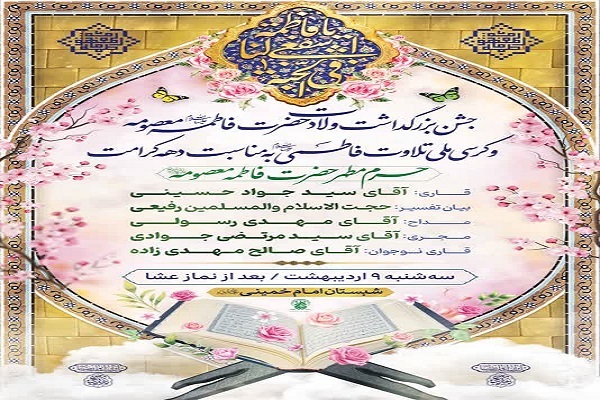 یا فاطمة
اشفعی لنا
فی الجنة
جشن بزرگداشت ولادت حضرت فاطمه معصومه
و کرسی ملی تلاوت فاطمی به مناسبت دهه کرامت
حرم مطهر حضرت فاطمه معصومه
قاری: آقای سید جواد حسینی
بیان تفسیر: حجت الاسلام والمسلمین رفیعی
مداح: آقای مهدی رسولی
مجری: آقای سید مرتضی جوادی
قاری نوجوان: آقای صالح مهدی زاده
سه‌شنبه ۹ اردیبهشت / بعد از نماز عشا
شبستان امام خمینی